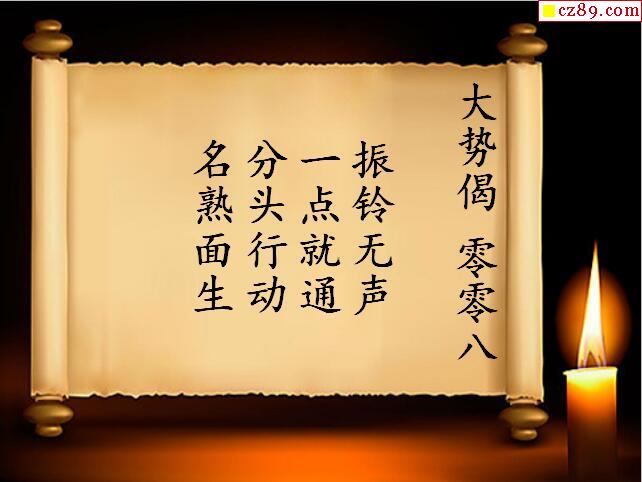 cz89.com
大势偈 零零八
振铃无声
一点就通
分头行动
名熟面生